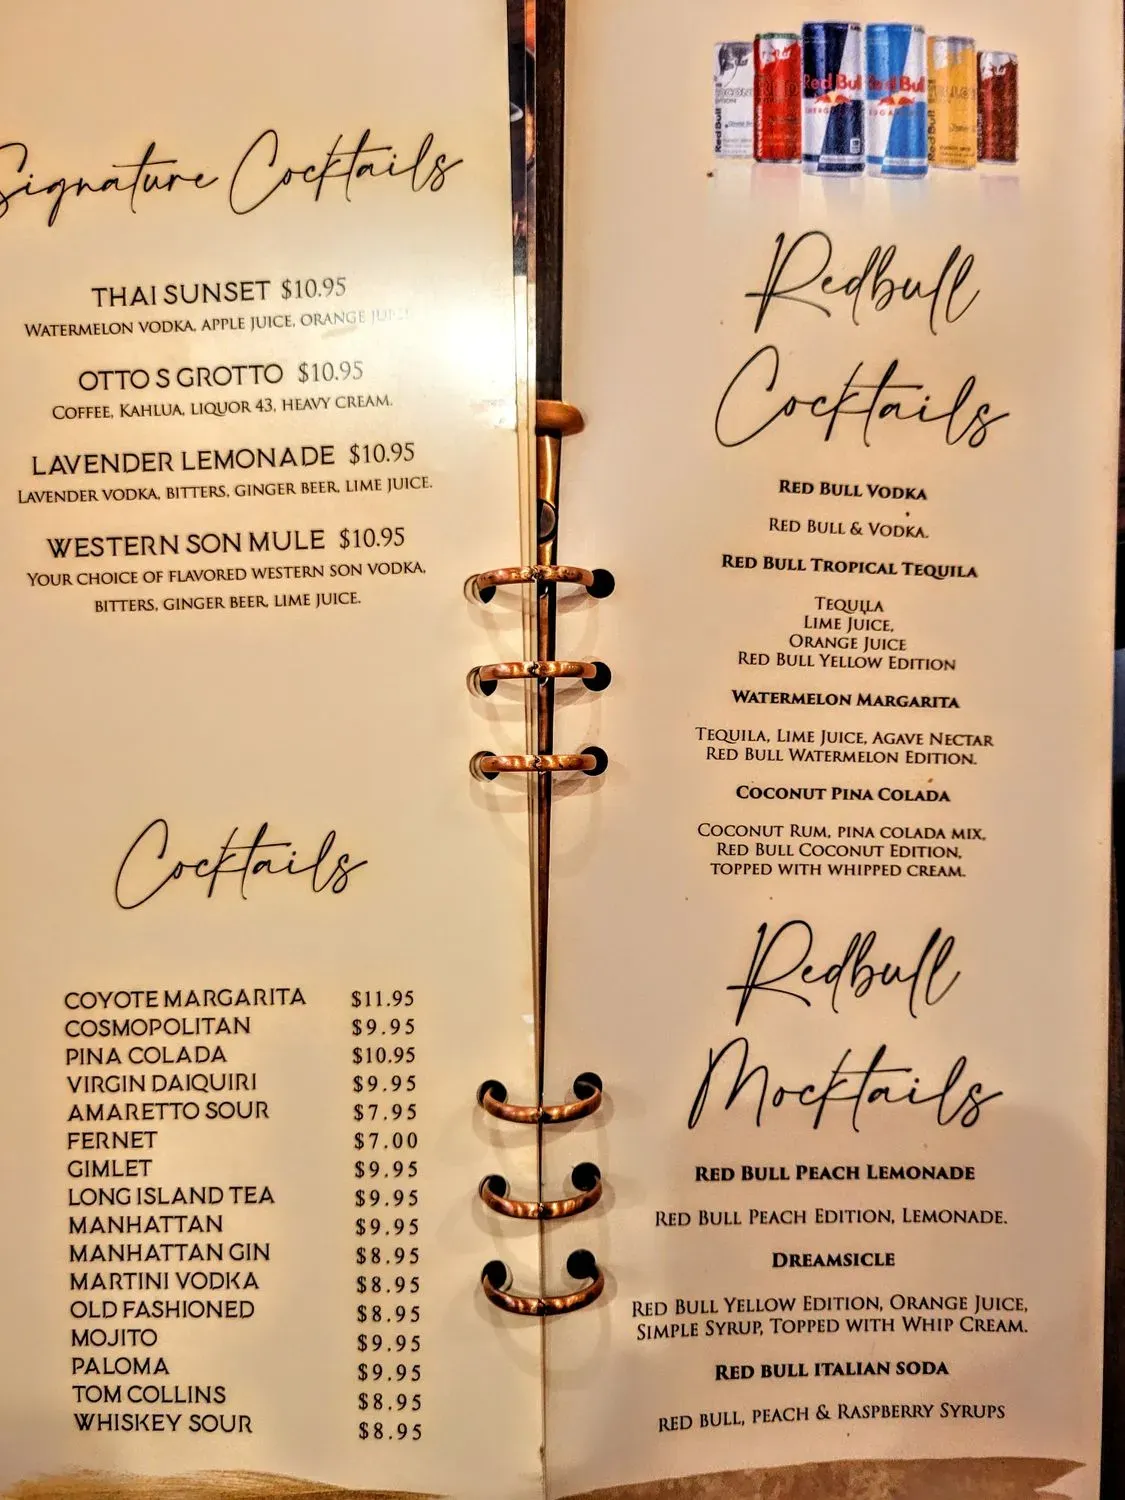 Signature Cocktails
THAI SUNSET $10.95
WATERMELON VODKA, APPLE JUICE, ORANGE JUICE
OTTO S GROTTO $10.95
COFFEE, KAHLUA, LIQUOR 43, HEAVY CREAM.
LAVENDER LEMONADE $10.95
LAVENDER VODKA, BITTERS, GINGER BEER, LIME JUICE.
WESTERN SON MULE $10.95
YOUR CHOICE OF FLAVORED WESTERN SON VODKA,
BITTERS, GINGER BEER, LIME JUICE.
Cocktails
COYOTE MARGARITA $11.95
COSMOPOLITAN $9.95
PINA COLADA $10.95
VIRGIN DAIQUIRI $9.95
AMARETTO SOUR $7.95
FERNET $7.00
GIMLET $9.95
LONG ISLAND TEA $9.95
MANHATTAN $9.95
MANHATTAN GIN $8.95
MARTINI VODKA $8.95
OLD FASHIONED $8.95
MOJITO $9.95
PALOMA $9.95
TOM COLLINS $8.95
WHISKEY SOUR $8.95
Red Bull Red Bull
Redbull
Cocktails
RED BULL VODKA
RED BULL & VODKA.
RED BULL TROPICAL TEQUILA
TEQUILA
LIME JUICE,
ORANGE JUICE
RED BULL YELLOW EDITION
WATERMELON MARGARITA
TEQUILA, LIME JUICE, AGAVE NECTAR
RED BULL WATERMELON EDITION.
COCONUT PINA COLADA
COCONUT RUM, PINA COLADA MIX,
RED BULL COCONUT EDITION,
TOPPED WITH WHIPPED CREAM.
Redbull
Mocktails
RED BULL PEACH LEMONADE
RED BULL PEACH EDITION, LEMONADE.
DREAMSICLE
RED BULL YELLOW EDITION, ORANGE JUICE,
SIMPLE SYRUP, TOPPED WITH WHIP CREAM.
RED BULL ITALIAN SODA
RED BULL, PEACH & RASPBERRY SYRUPS